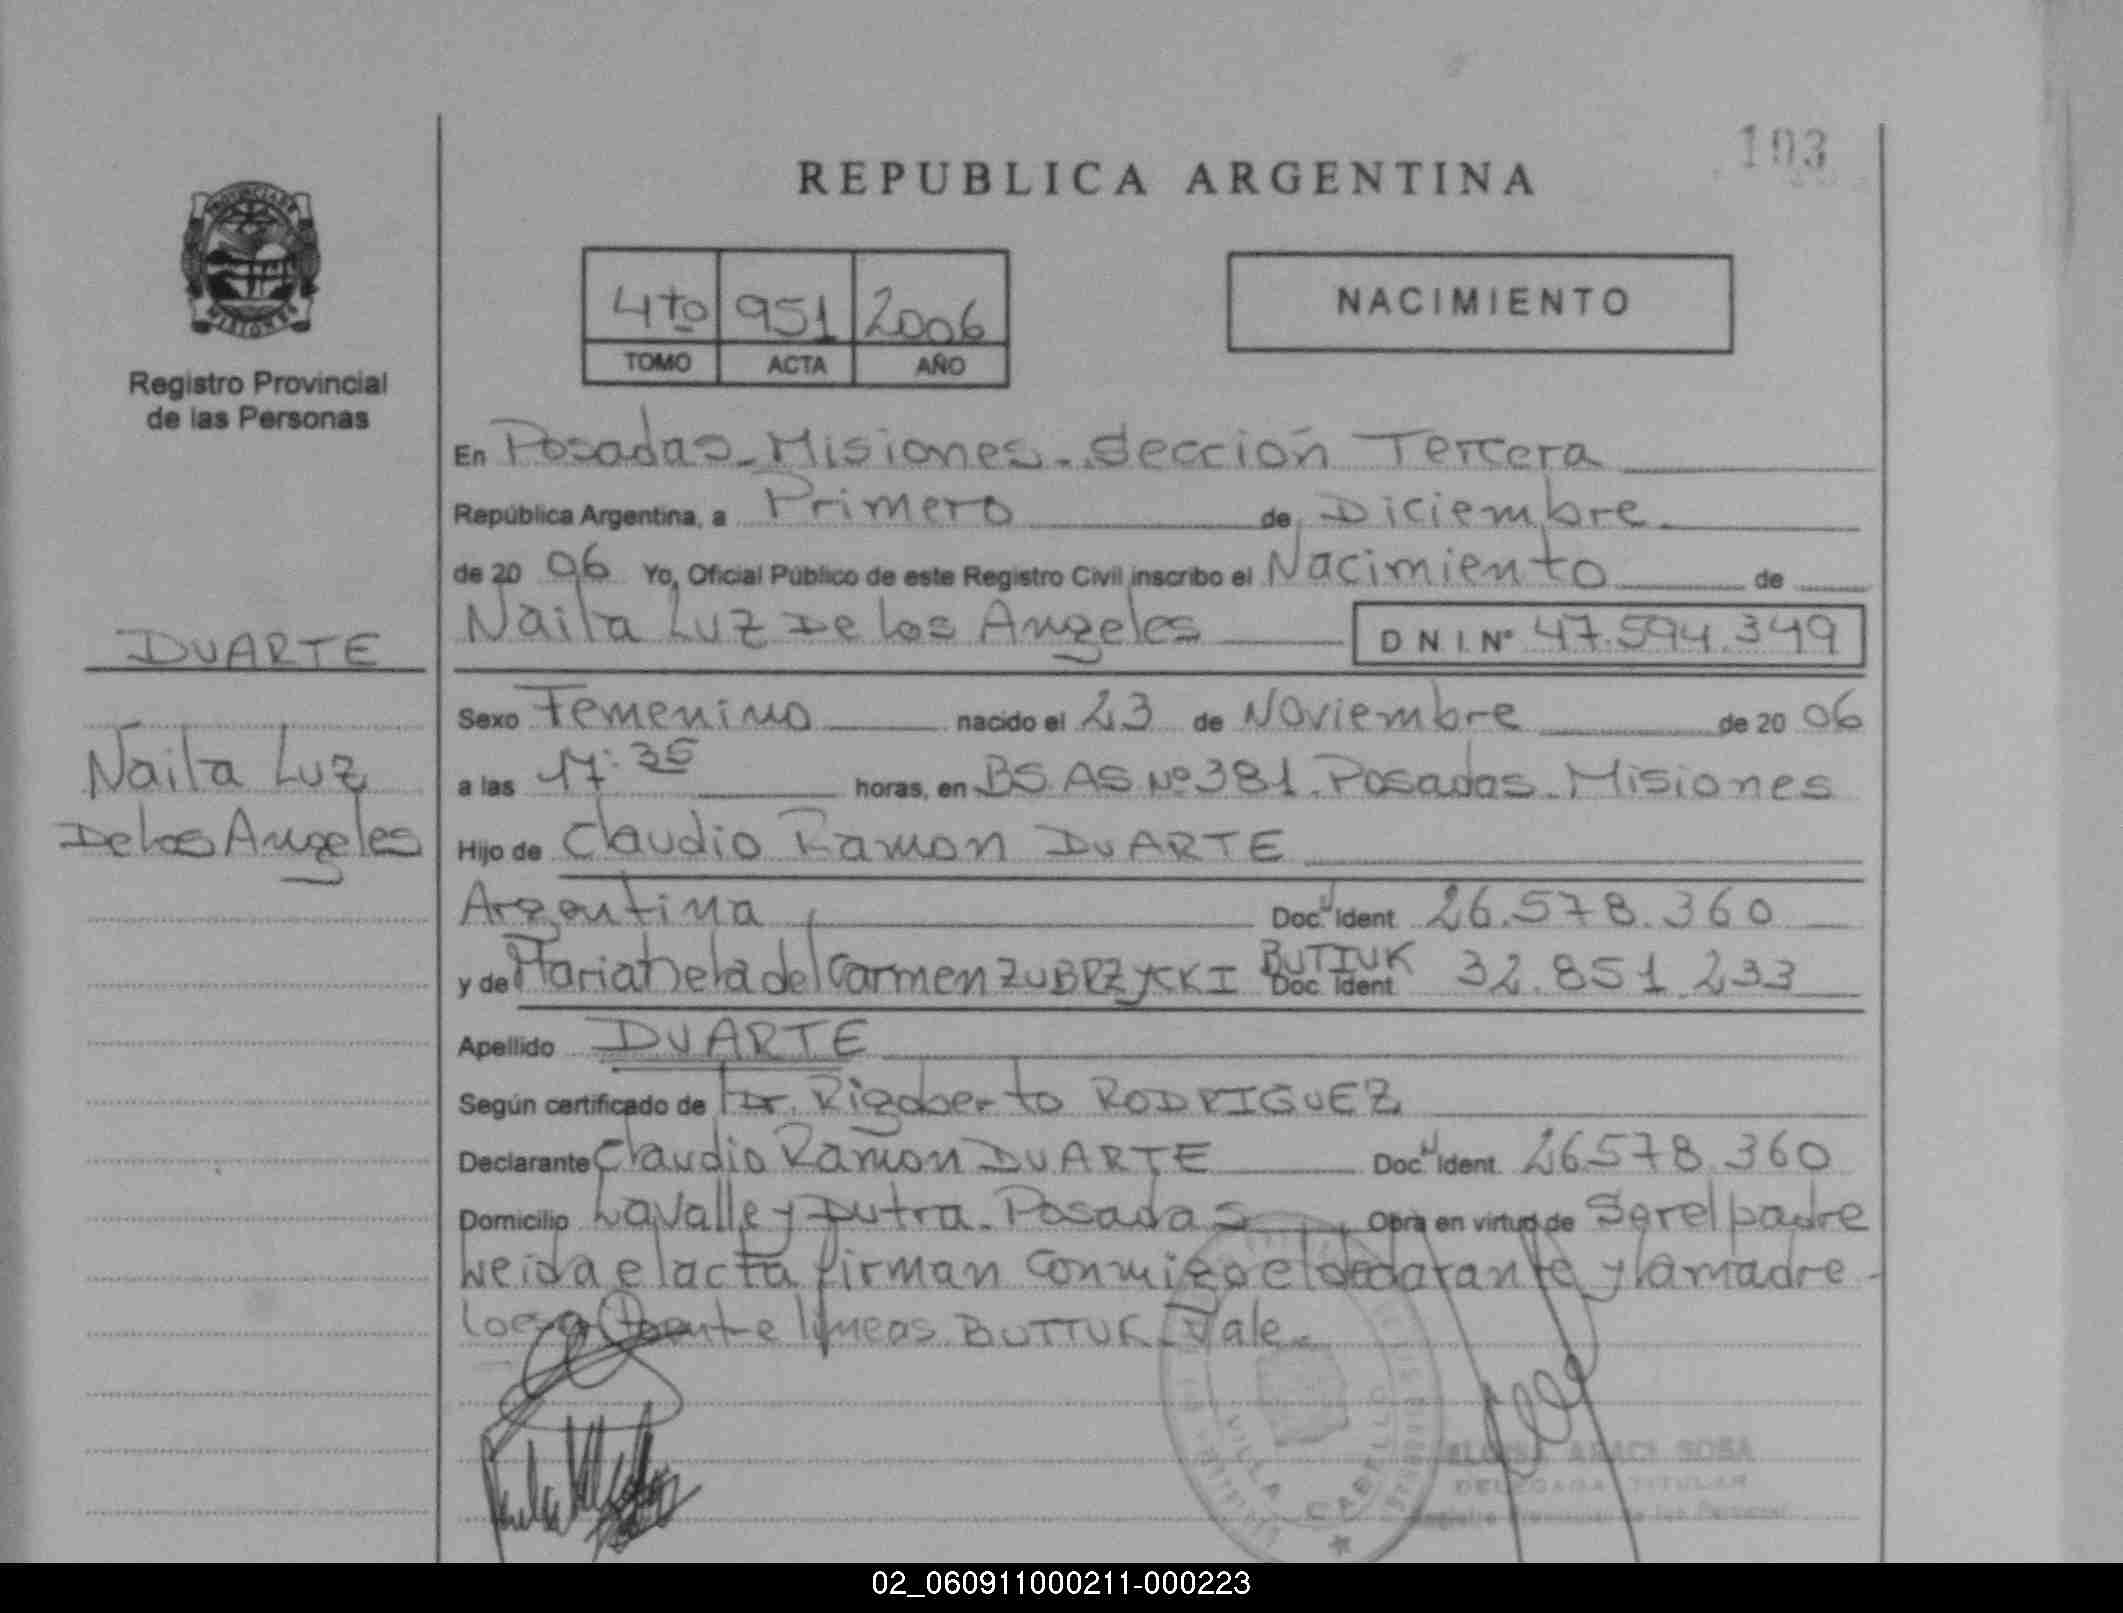 103
REPUBLICA ARGENTINA
PROVINCIA DE
MISIONES
Registro Provincial
de las Personas
4to 951 2006
TOMO ACTA AÑO
NACIMIENTO
En Posadas - Misiones - Sección Tercera
República Argentina, a Primero de Diciembre
de 20 06 Yo, Oficial Público de este Registro Civil inscribo el Nacimiento de
Naila Luz De los Angeles D N I. Nº 47.594.349
DUARTE
Naila Luz
De los Angeles
Sexo Femenino nacido el 23 de Noviembre de 20 06
a las 17:35 horas, en BS AS Nº 381 - Posadas - Misiones
Hijo de Claudio Ramon DUARTE
Argentina Doc. Ident 26.578.360
y de del Carmen ZUBRZYCKI BUTTUK Doc. Ident 32.851.233
Apellido DUARTE
Según certificado de Dr. Rigoberto RODRIGUEZ
Declarante Claudio Ramon DUARTE Doc. Ident. 26.578.360
Domicilio Lavalle y Dutra - Posadas Obra en virtud de Ser el padre
Leida el acta firman conmigo el declarante y la madre -
lineas BUTTUK - Vale -
VILLA CABELLO
ARACI SOSA
DELEGADA TITULAR
02_060911000211-000223